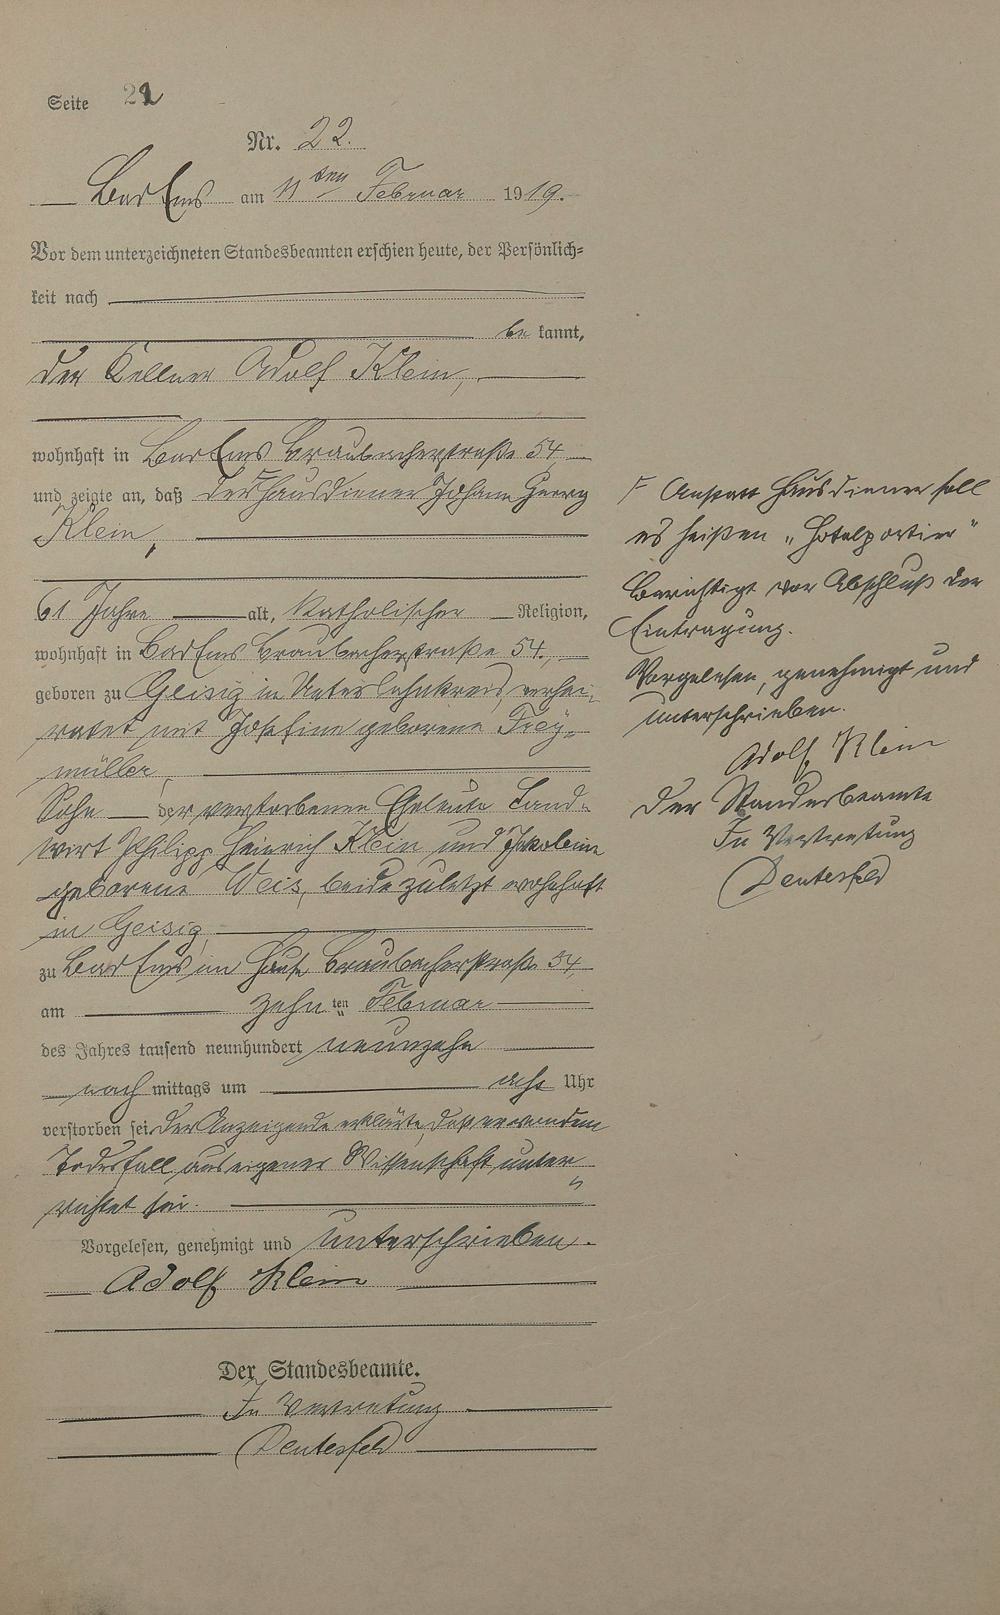 Seite 21
Nr. 22.
Bad Ems am 11ten Februar 1919.
Vor dem unterzeichneten Standesbeamten erschien heute, der Persönlich-
keit nach
be kannt,
der Kellner Adolf Klein,
wohnhaft in Bad Ems Braubacherstraße 54
und zeigte an, daß der Hausdiener Johann Georg
Klein,
61 Jahre alt, katholischer Religion,
wohnhaft in Bad Ems Braubacherstraße 54.,
geboren zu Geisig im Unterlahnkreis, verhei-
ratet mit Josefine geborene Frey-
müller,
Sohn der verstorbenen Eheleute Land-
wirt Philipp Heinrich Klein und Jakobine
geborene Weis, beide zuletzt wohnhaft
in Geisig,
zu Bad Ems im Hause Braubacherstraße 54
am zehnten Februar
des Jahres tausend neunhundert neunzehn
nach mittags um acht Uhr
verstorben sei. Der Anzeigende erklärte, daß er von dem
Todesfall aus eigener Wissenschaft unter-
richtet sei.
Vorgelesen, genehmigt und unterschrieben.
Adolf Klein
Der Standesbeamte.
In Vertretung
Deutesfeld
Γ Anstatt Hausdiener soll
es heißen „Hotelportier"
Berichtigt vor Abschluß der
Eintragung.
Vorgelesen, genehmigt und
unterschrieben.
Adolf Klein
Der Standesbeamte
In Vertretung
Deutesfeld